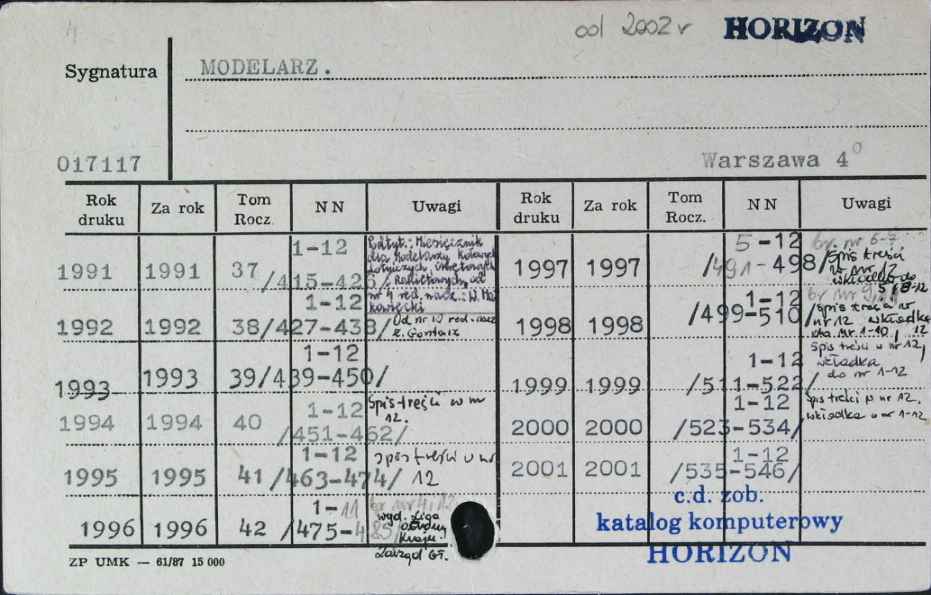 od 2002 r HORIZON
Sygnatura MODELARZ.
017117 Warszawa 4°
Rok druku Za rok Tom Rocz. NN Uwagi Rok druku Za rok Tom Rocz. NN Uwagi
1991 1991 37 1-12 /415-426/ Podtyt.: Miesięcznik dla Modelarzy
1992 1992 38 1-12 /427-438/ Od nr red. nacz.
1993 1993 39 1-12 /439-450/
1994 1994 40 1-12 /451-462/ Spis treści w nr 12.
1995 1995 41 1-12 /463-474/ spis treści w nr 12
1996 1996 42 1-11 /475-485/ br nr 4, 12 wyd. Liga Obrony Kraju. Zarząd Gł.
1997 1997 5-12 /491-498/ br. nr 6-7 Spis treści w nr 12
1998 1998 1-12 /499-510/ spis treści w nr 12
1999 1999 1-12 /511-522/ Spis treści w nr 12, wkładka do nr 1-12
2000 2000 1-12 /523-534/ Spis treści w nr 12. wkładka w nr 1-12
2001 2001 1-12 /535-546/
c.d. zob.
katalog komputerowy
HORIZON
ZP UMK — 61/87 15 000